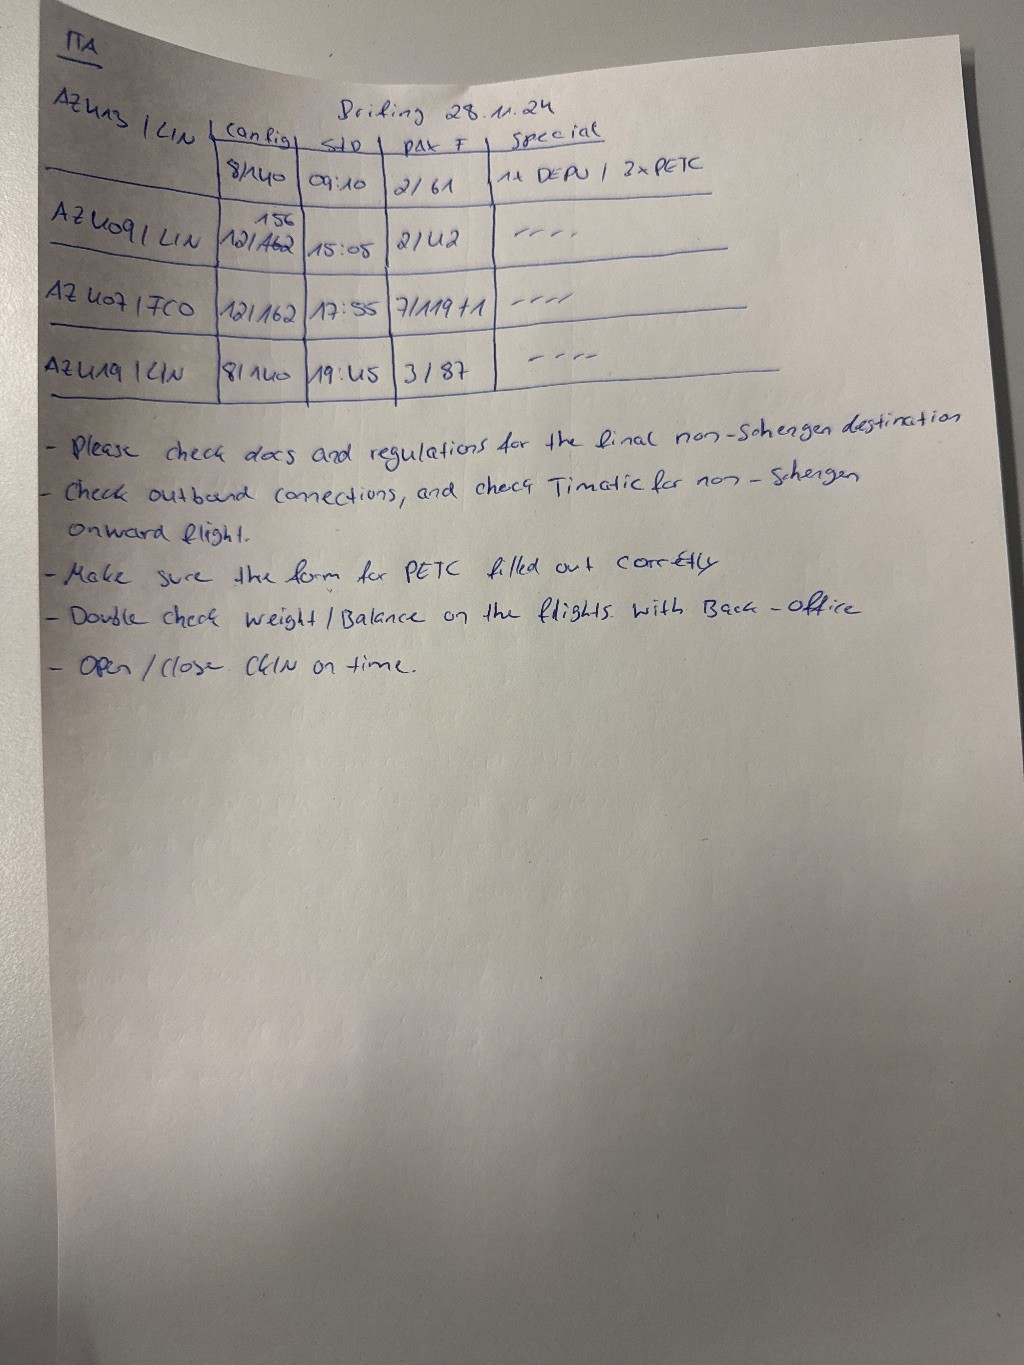 ITA
Briefing 28.11.24
AZ413 / LIN Config STD PAX F Special
8/140 09:10 2/61 1x DEPU / 2x PETC
156
AZ409 / LIN 12/162 15:05 2/42 ----
AZ407 / FCO 12/162 17:55 7/119+1 ----
AZ419 / LIN 8/140 19:45 3/87 ----
- Please check docs and regulations for the final non-Schengen destination
- Check outbound connections, and check Timatic for non-Schengen
onward flight.
- Make sure the form for PETC filled out correctly
- Double check weight/Balance on the flights with Back-office
- Open/Close CKIN on time.